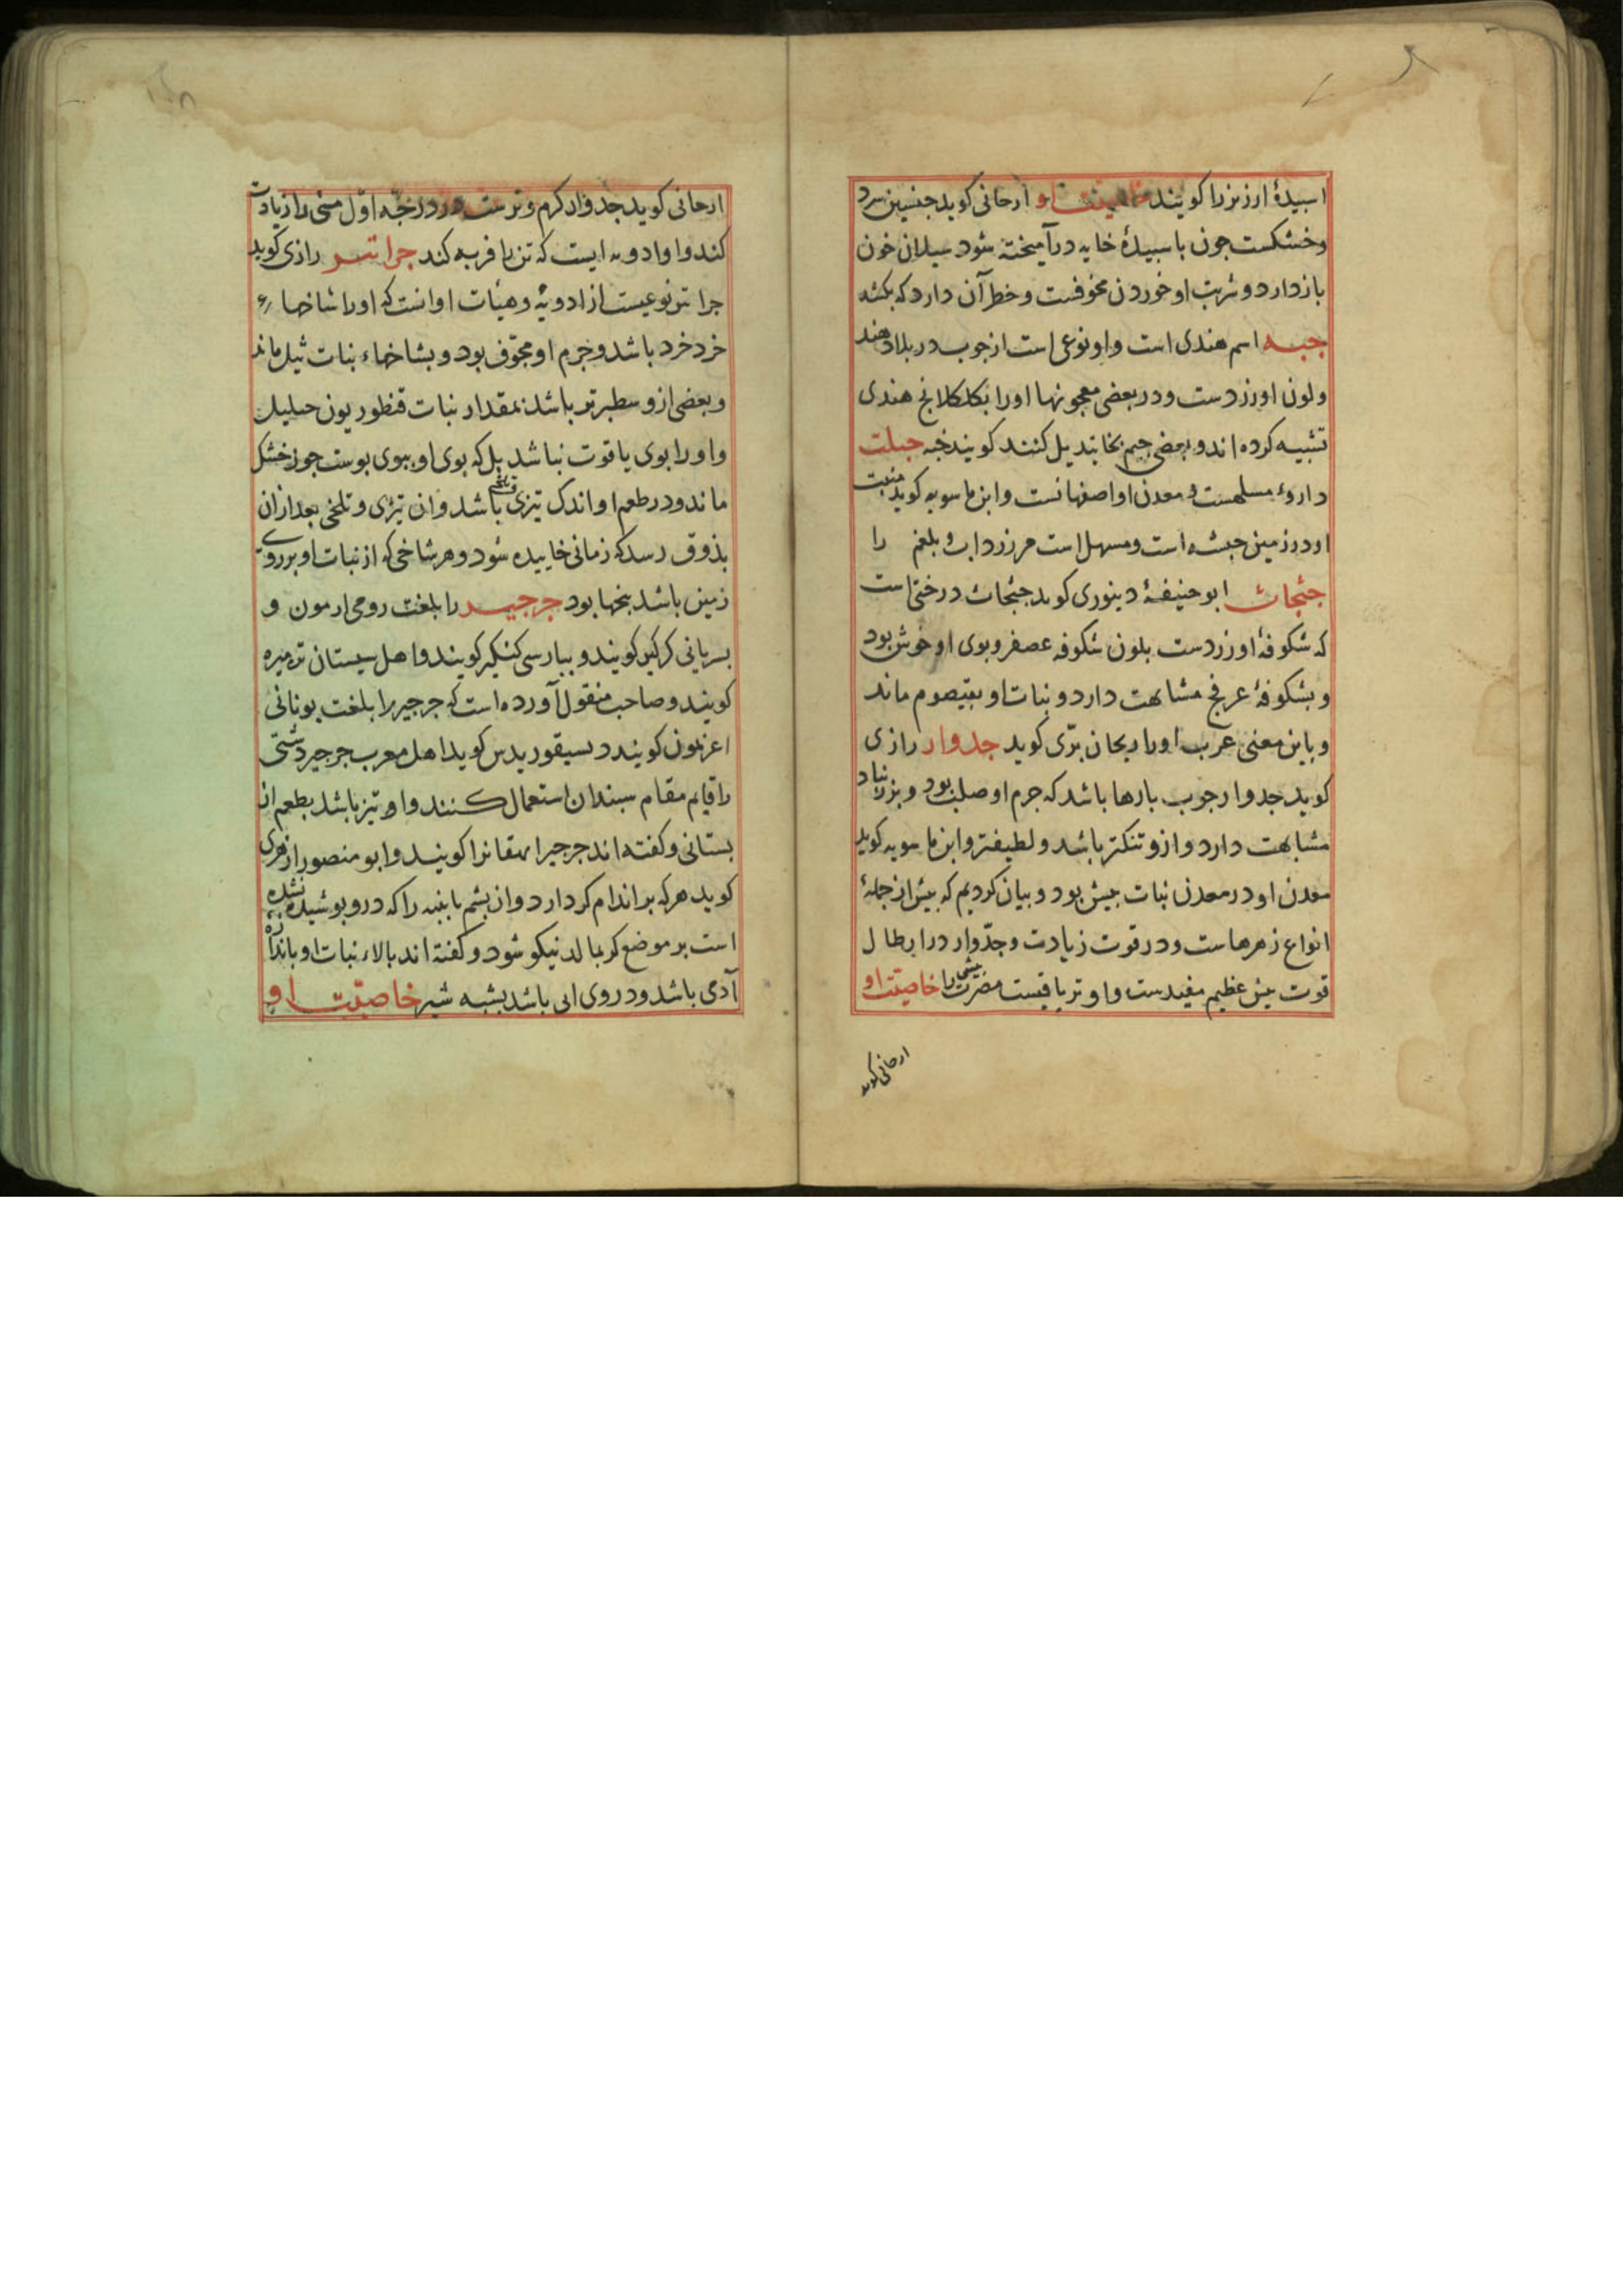 اسبیدهٔ ارزیزرا کویند خاصیّت او ارجانی کوید جبسین سرد
وخشکست جون باسبیدهٔ خایه درآمیخته شود سیلان خون
بازدارد و شربت او خوردن مخوفست وخطر آن دارد که بکشد
جبه اسم هندی است و او نوعی است از جوب در بلاد هند
ولون او زردست ودر بعضی معجونها اورا بکلکلانج هندی
تشبیه کرده اند و بعضی جیم بخا تبدیل کنند کویند خبه جبلت
داروء مسلهست و معدن او اصفهانست وابن ماسویه کوید منبت
او در زمین حبشه است ومسهل است مر زرداب و بلغم را
جثجاث ابو حنیفهٔ دینوری کوید جثجاث درختی است
که شکوفهٔ او زردست بلون شکوفه عصفر وبوی او خوش بود
و بشکوفهٔ عرفج مشابهت دارد و نبات او بقیصوم ماند
وباین معنی عرب اورا ریحان برّی کوید جدوار رازی
کوید جدوار جوب بارها باشد که جرم او صلب بود و بزرنباد
مشابهت دارد وازو تنکتر باشد و لطیفتر وابن ماسویه کوید
معدن او در معدن نبات بیش بود و بیان کردیم که بیش از جملهٔ
انواع زهرهاست ودر قوت زیادت وجدّوار در ابطال
قوت بیش عظیم مفیدست واو تریاقیست مضرت بیش را خاصیّت او
ارجانی کوید
ارجانی کوید جدوار کرم وترست در درجهٔ اوّل منی را زیادت
کند واو ادویه ایست که تن را فربه کند جراتسر رازی کوید
جراتر نوعیست از ادویه وهیأت او انست که اورا شاخهاء
خرد خرد باشد وجرم او مجوّف بود و بشاخهاء نبات ثیل ماند
وبعضی ازو سطبرتر باشد بمقدار نبات قنطوریون
واورا بوی یا قوت نباشد بل که بوی او ببوی بوست جوز خشک
ماند ودر طعم او اندک تیزی باشد وان تیزی و تلخی بعد ازان
بذوق رسد که زمانی خاییده شود وهر شاخی که از نبات او بر روی
زمین باشد بیخها بود جرجیر را بلغت رومی ارمون و
بسریانی کرکیر کویند و ببارسی کنکیر کویند واهل سیستان تره میره
کویند وصاحب منقول آورده است که جرجیر را بلغت یونانی
اعزمون کویند دیسقوریدس کوید اهل مغرب جرجیر دشتی
را قایم مقام سبندان استعمال کنند واو تیز باشد بطعم از
بستانی وکفته اند جرجیر ایهقانرا کویند وابو منصور ازهری
کوید هرکه بر اندام کر دارد وان بشم یا بنبه را که درو بوشیده نشده
است بر موضع کر بمالد نیکو شود وکفته اند بالاء نبات او باندازه
آدمی باشد ودر وی ابی باشد بشبه شیر خاصیّت او